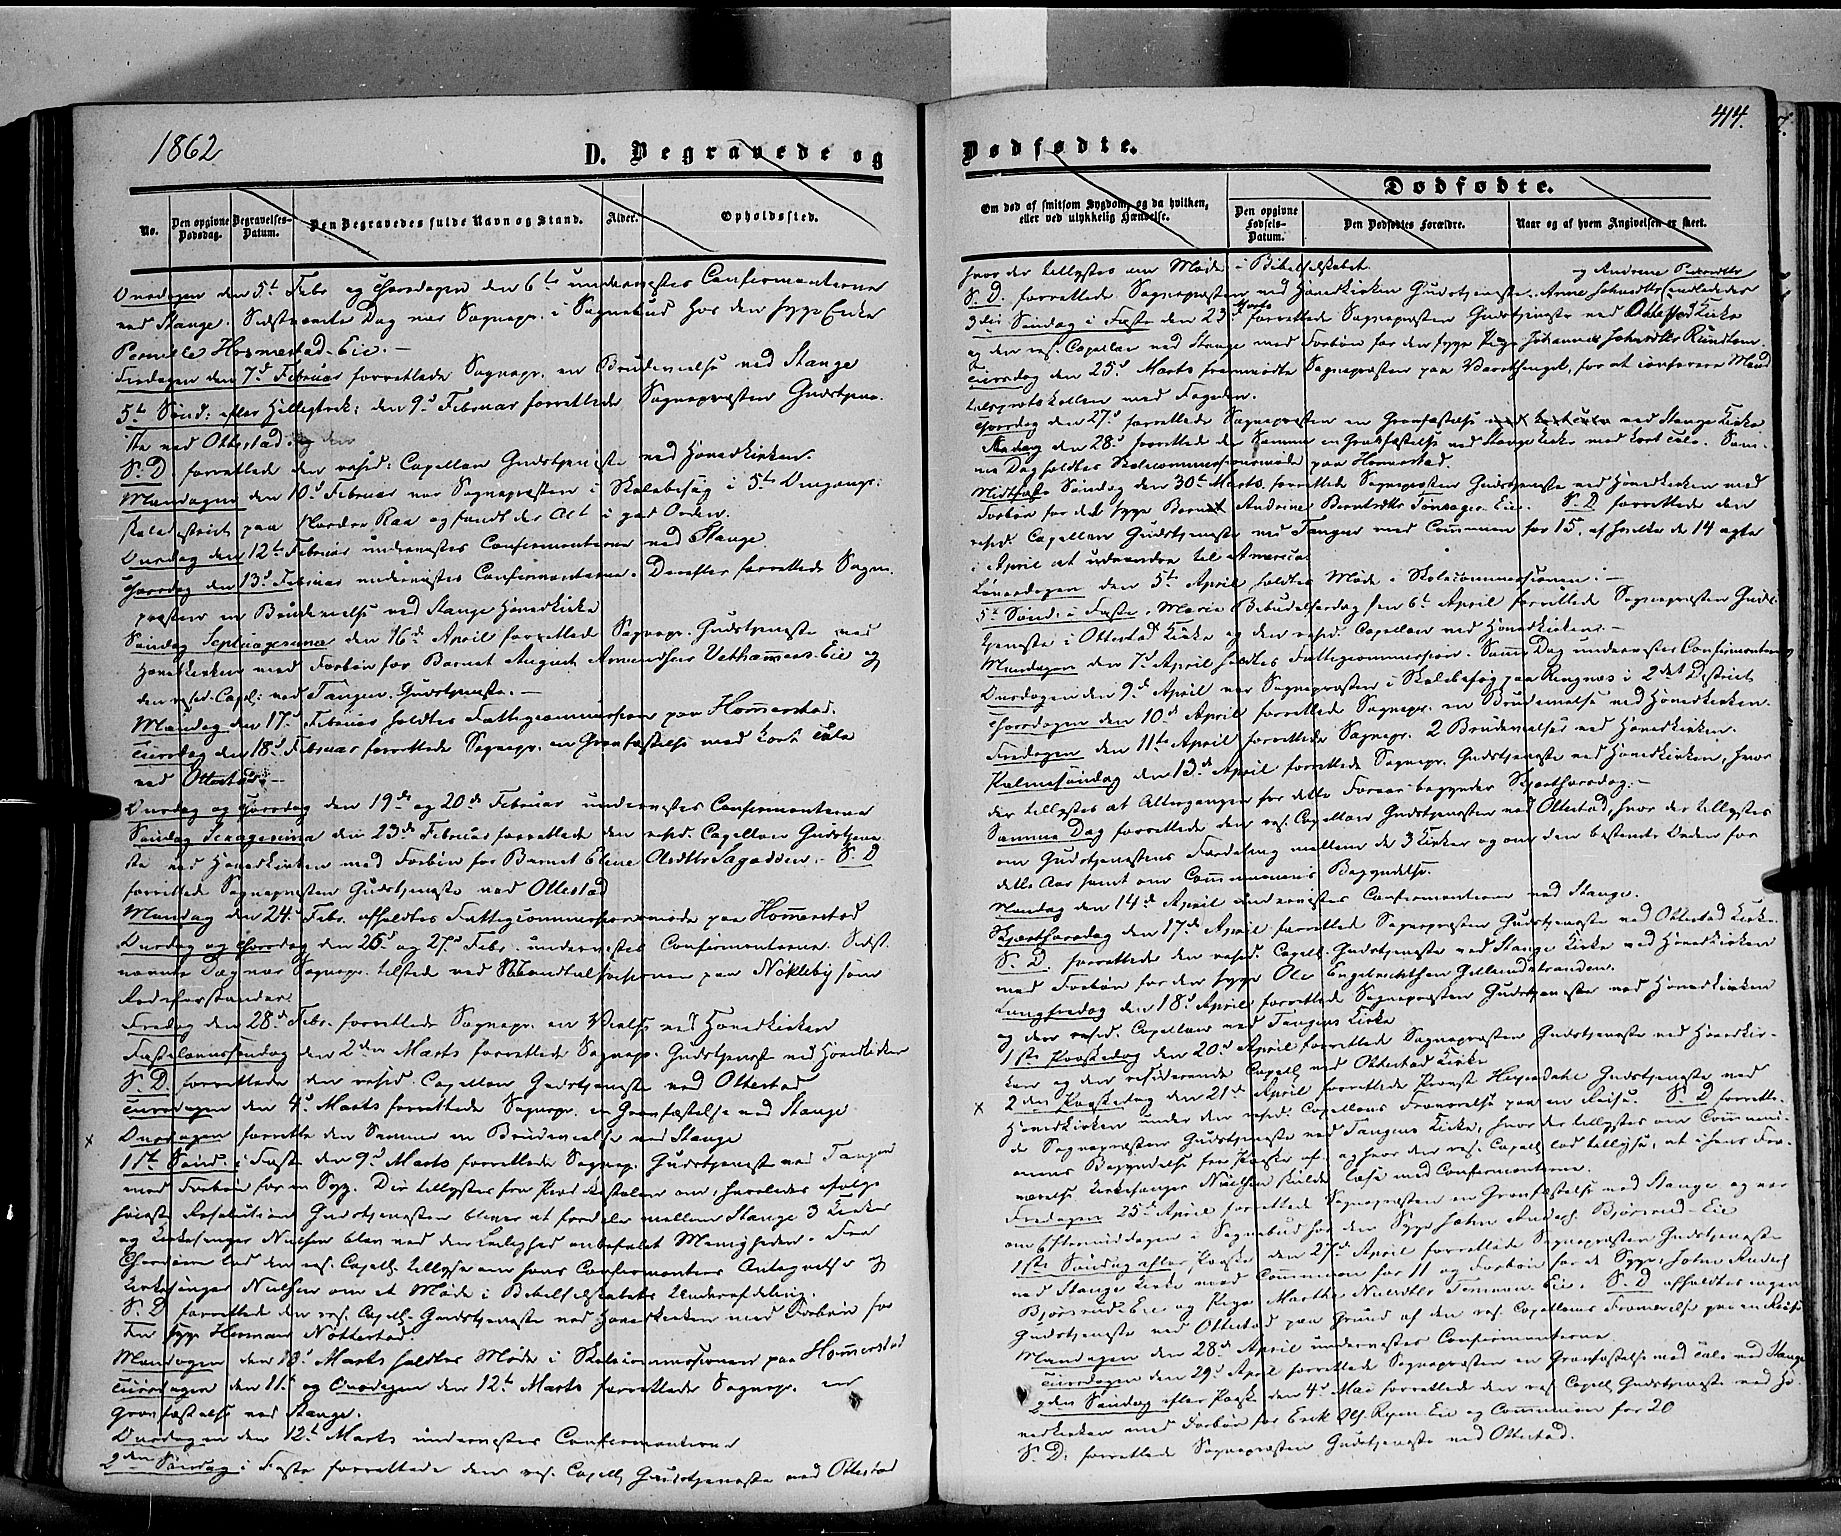 1862
D. Begravede og
No.
Den opgivne Dødsdag.
Begravelses-Datum.
Den Begravedes fulde Navn og Stand.
Alder.
Opholdssted.
Onsdagen den 5te Febr og Thorsdagen den 6te undervistes Confirmanterne
ved Stange. Sidstnævnte Dag var Sognepr. i Sognebud hos den syge Enke
Pernille Hommestad-Eie.-
Fredagen den 7d Februar forrettede Sognepr. en Brudevielse ved Stange
5te Sønd: efter Helligtrek: den 9d Februar forrettede Sognepræsten Gudstjene-
ste ved Ottestad
S. D. forrettede den resid: Capellan Gudstjeneste ved Hovedkirken.
Mandagen den 10d Februar var Sognepræsten i Skolebesøg i 5te Omgangs-
skoledistrict paa Nordre Raa og fandt der Alt i god Orden.
Onsdag den 12te Februar undervistes Confirmanterne ved Stange.
Thorsdag den 13d Februar undervistes Confirmanterne. Derefter forrettede Sogne-
præsten en Brudevielse ved Stange Hovedkirke
Søndag Septuagesima den 16d April forrettede Sognepr. Gudstjeneste ved
Hovedkirken med Forbøn for Barnet August Amundsen Vethammers-Eie og
den resid. Capel: ved Tangen Gudstjeneste.-
Mandag den 17d Februar holdtes Fattigcommission paa Hommerstad.
Tirsdag den 18d Februar forrettede Sognepr. en Gravfæstelse med kort Tale
ved Ottestad.-
Onsdag og Thorsdag den 19de og 20de Februar undervistes Confirmanterne
Søndag Sexagesima den 23de Februar forrettede den resid. Capellan Gudstjene-
ste ved Hovedkirken med Forbøn for Barnet Elene Olsdtr Sagadden. S. D
forrettede Sognepræsten Gudstjeneste ved Ottestad
Mandag den 24d Febr. afholdtes Fattigcommissionsmøde paa Hommerstad
Onsdag og Thorsdag den 26d og 27d Febr. undervistes Confirmanterne. Sidst-
nævnte Dag var Sognepr. tilstede ved paa Nökleby som
Fredag den 28d Febr. forrettede Sognepr. en Vielse ved Hovedkirken
Fastelavnssøndag den 2den Marts forrettede Sognepr. Gudstjeneste ved Hovedkirken
S. D. forrettede den resid. Capellan Gudstjeneste ved Ottestad
Tirsdagen den 4d Marts forrettede Sognepr. en Gravfæstelse ved Stange
x Onsdagen forrettede den Samme en Brudevielse ved Stange
1ste Sønd. i Faste den 9d Marts forrettede Sognepr. Gudstjeneste ved Tangen
med Forbøn for en Syg. Der tillystes fra Prædikestolen om, hvorledes ifølge
høieste Resolution Gudstjenesten bliver at fordele mellem Stange 3 Kirker
og Kirkesanger Nielsen blev ved den Leilighed anbefalet Menigheden. Fra
Chordøren lod den res. Capell. tillyse om hans Confirmanters Antagelse og
Kirkesanger Nielsen om et Møde i Bibelselskabets Underafdeling.
S. D. forrettede den res. Capell. Gudstjeneste ved Hovedkirken med Forbøn for
den syge Herman Nöttestad.
Mandagen den 10d Marts holdtes Møde i Skolecommissionen paa Hommerstad
Tirsdagen den 11te og Onsdagen den 12te Marts forrettede Sognepr. en
Gravfæstelse ved Stange.
Onsdagen den 12te Marts undervistes Confirmanterne
2den Søndag i Faste forrettede den res. Capell. Gudstjeneste ved Ottestad
414.
Dødfødte.
Om død af smitsom Sygdom, og da hvilken, eller ved ulykkelig Hændelse.
Dødfødte.
Den opgivne Fødsels-Datum.
Den Dødfødtes Forældre.
Naar og af hvem Angivelsen er skeet.
hvor der tillystes om Møde i Bibelselskabet.
S. D. forrettede Sognepræsten ved Hovedkirken Gudstjeneste.
3die Søndag i Faste den 23d Marts forrettede Sognepræsten Gudstjeneste ved Ottestad Kirke
og den res. Capellan ved Stange med Forbøn for den syge Pige Johanne Johnsdtr Rundtom.
Tirsdag den 25d Marts fremmødte Sognepræsten paa Varethinget, for at conferere Mand
talsprotokollen med Fogeden.
Thorsdag den 27d forrettede Sognepræsten en Gravfæstelse ved Stange Kirke
Fredag den 28d forrettede den Samme en Gravfæstelse ved Stange Kirke med kort Tale. Sam-
me Dag holdtes Skolecommissionsmøde paa Hommerstad.
Midfaste Søndag den 30te Marts forrettede Sognepræsten Gudstjeneste ved Hovedkirken med
Forbøn for det syge Barn Andrine Berntsdtr Tønsager-Eie. S. D forrettede den
resid. Capellan Gudstjeneste ved Tangen med Commun. for 15, af hvilke de 14 agte
i April at udvandre til America
Løverdagen den 5te April holdtes Møde i Skolecommissionen.-
5te Sønd. i Faste, Mariæ Bebudelsesdag den 6te April forrettede Sognepræsten Guds-
tjeneste i Ottestad Kirke og den resid. Capellan ved Hovedkirken.-
Mandagen den 7d April holdtes Fattigcommission. Samme Dag undervistes Confirmanterne
Onsdagen den 9d April var Sognepræsten i Skolebesøg paa Ringnæs i 2det District
Thorsdagen den 10d April forrettede Sognepr. en Brudevielse ved Hovedkirken.
Fredagen den 11te April forrettede Sognepr. 2 Brudevielser ved Hovedkirken.
Palmesøndag den 13d April forrettede Sognepr. Gudstjeneste ved Hovedkirken, hvor
der tillystes at Altergangen for dette Foraar begynder Skjærthorsdag.-
Samme Dag forrettede den res. Capellan Gudstjenesten ved Ottestad, hvor der tillystes
om Gudstjenestens Fordeling mellem de 3 Kirker og om den bestemte Orden for
dette Aar samt om Communionens Begyndelse.
Mandag den 14d April undervistes Confirmanterne ved Stange.
Skjærthorsdag den 17de April forrettede Sognepræsten Gudstjeneste ved Ottestad Kirke.
S. D. forrettede den resid. Capell. Gudstjeneste ved Stange Kirke ved Hovedkirken
med Forbøn for den syge Ole Engebrethsen Gillundstranden.
Langfredag den 18d April forrettede Sognepræsten Gudstjeneste ved Hovedkirken
og den resid. Capellan ved Tangens Kirke
1ste Paaskedag den 20d April forrettede Sognepræsten Gudstjeneste ved Hovedkir-
ken og den residerende Capell. ved Ottestad Kirke
x 2den Paaskedag den 21de April forrettede Provst Heyerdahl Gudstjeneste ved
Hovedkirken under den resid. Capellans Fraværelse paa en Reise. S. D forrette-
de Sognepræsten Gudstjeneste ved Tangens Kirke, hvor der tillystes om Communi-
onens Begyndelse fra Paaske af, og hvor den res. Capell. lod tillyse, at i hans Fra-
værelse Kirkesanger Nielsen skulde læse med Confirmanterne.
Fredagen 25d April forrettede Sognepræsten en Gravfæstelse ved Stange og var
om Eftermiddagen i Sognebud hos den Syge John Anders. Bjørsrud-Eie
1ste Søndag efter Paaske den 27d April forrettede Sognepræsten Gudstjeneste
ved Stange Kirke med Communion for 11 og Forbøn for de Syge: John Anders.
Bjørsrud-Eie og Pige Marthe Nielsdtr Eie. S. D afholdtes ingen
Gudstjeneste ved Ottestad paa Grund af den res. Capellans Fraværelse paa en Reise
Mandagen den 28d April undervistes Confirmanterne.
Tirsdagen den 29d April forrettede Sognepræsten en Gravfæstelse med Tale ved Stange
2den Søndag efter Paask. den 4d Mai forrettede den res. Capell. Gudstjeneste ved Ho-
vedkirken med Forbøn for Erik Ols. Ryen-Eie og Communion for 20
S. D. forrettede Sognepræsten Gudstjeneste ved Ottestad.